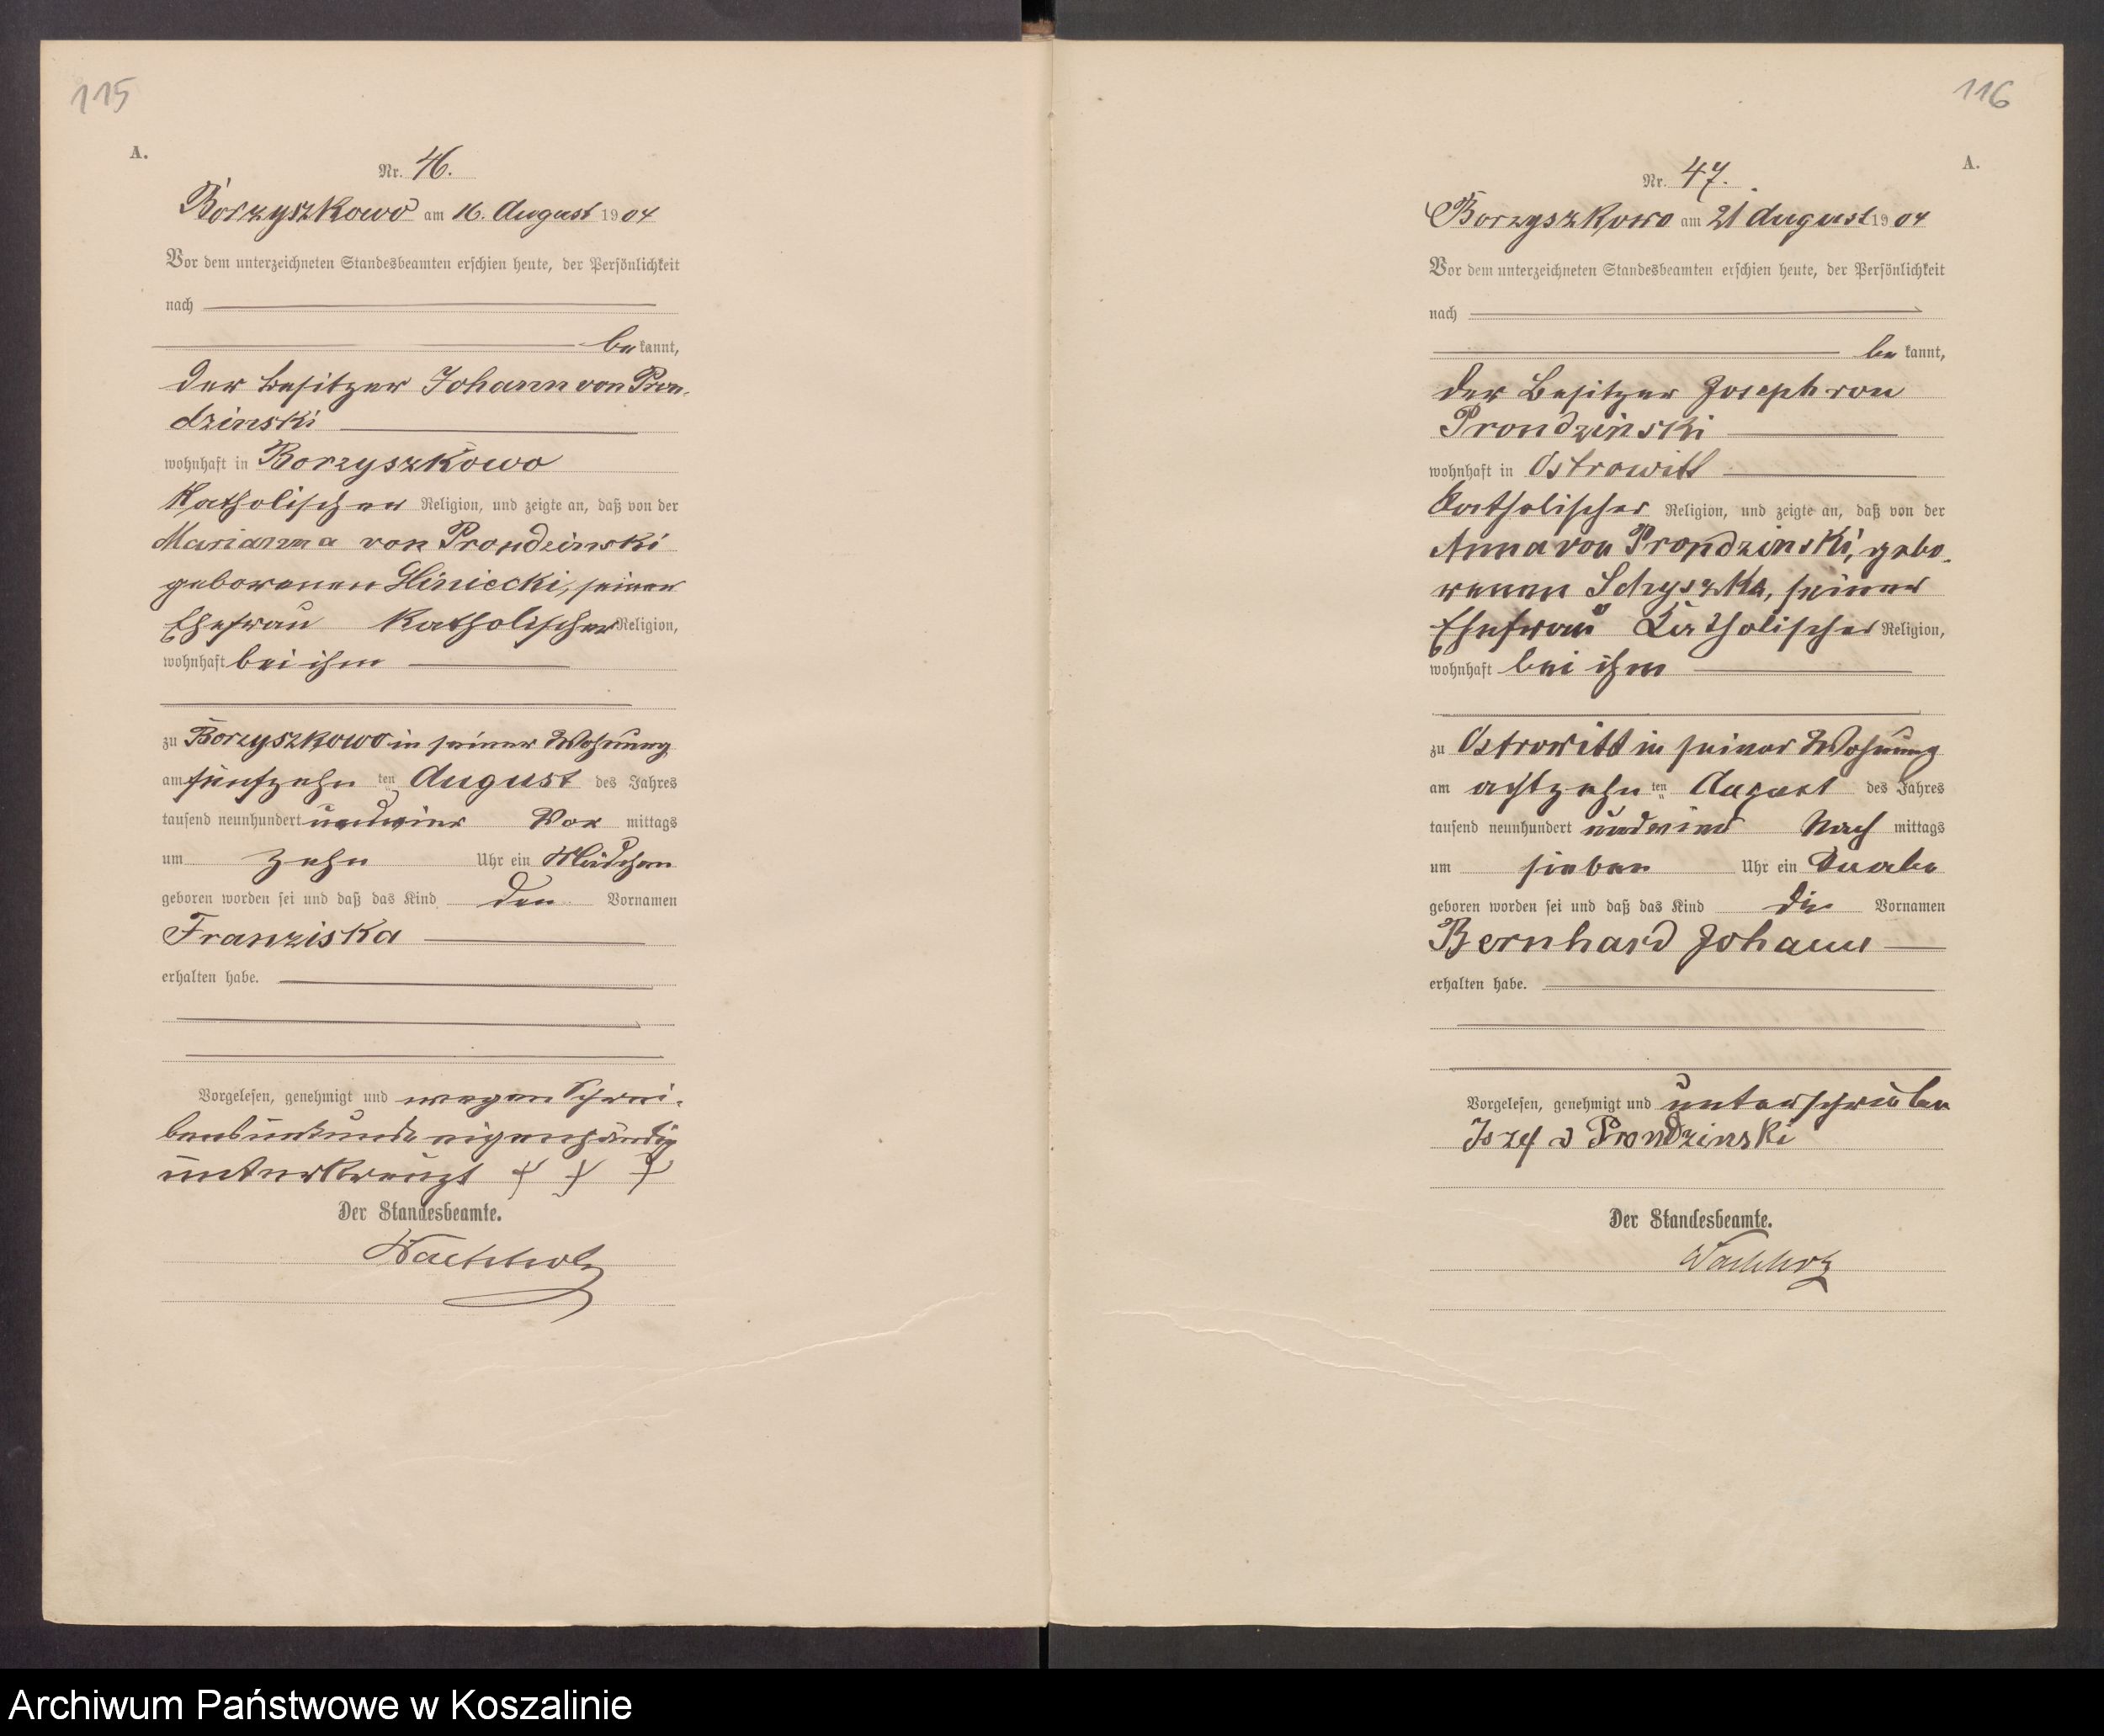 115
A.
Nr. 46.
Borzyszkowo am 16. August 1904
Vor dem unterzeichneten Standesbeamten erschien heute, der Persönlichkeit
nach
bekannt,
der Besitzer Johann von Pron-
dzinski
wohnhaft in Borzyszkowo
katholischer Religion, und zeigte an, daß von der
Marianna von Prondzinski
geborenen Gliniecki, seiner
Ehefrau katholischer Religion,
wohnhaft bei ihm
zu Borzyszkowo in seiner Wohnung
am fünfzehn ten August des Jahres
tausend neunhundert und vier Vor mittags
um zehn Uhr ein Mädchen
geboren worden sei und daß das Kind den Vornamen
Franziska
erhalten habe.
Vorgelesen, genehmigt und wegen Schrei-
bensunkunde eigenhändig
unterkreuzt + + +
Der Standesbeamte.
Wachholz
116
A.
Nr. 47.
Borzyszkowo am 21 August 1904
Vor dem unterzeichneten Standesbeamten erschien heute, der Persönlichkeit
nach
bekannt,
der Besitzer Joseph von
Prondzinski
wohnhaft in Ostrowitt
katholischer Religion, und zeigte an, daß von der
Anna von Prondzinski, gebo-
renen Schyszka, seiner
Ehefrau katholischer Religion,
wohnhaft bei ihm
zu Ostrowitt in seiner Wohnung
am achtzehn ten August des Jahres
tausend neunhundert und vier Nach mittags
um sieben Uhr ein Knabe
geboren worden sei und daß das Kind die Vornamen
Bernhard Johann
erhalten habe.
Vorgelesen, genehmigt und unterschrieben
Jozef v Prondzinski
Der Standesbeamte.
Wachholz
Archiwum Państwowe w Koszalinie